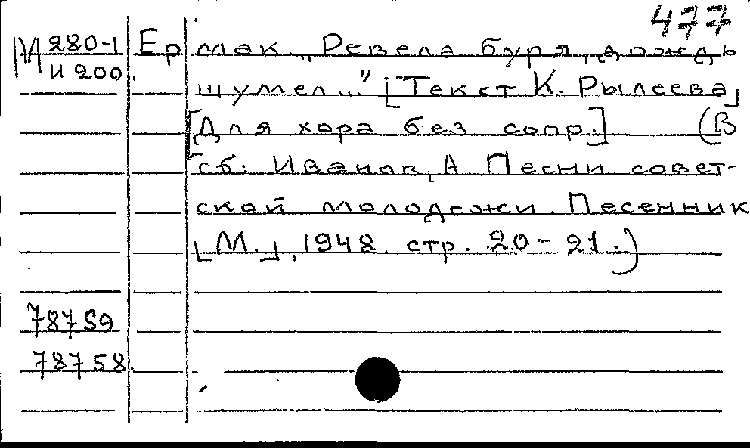 477
М 280-1 Ермак „Ревела буря, дождь
И 200 шумел..." [Текст К. Рылеева]
[Для хора без сопр.] (В
сб. Иванов, А Песни совет-
ской молодежи. Песенник
[М.], 1948. стр. 20-21.)
78759
78758